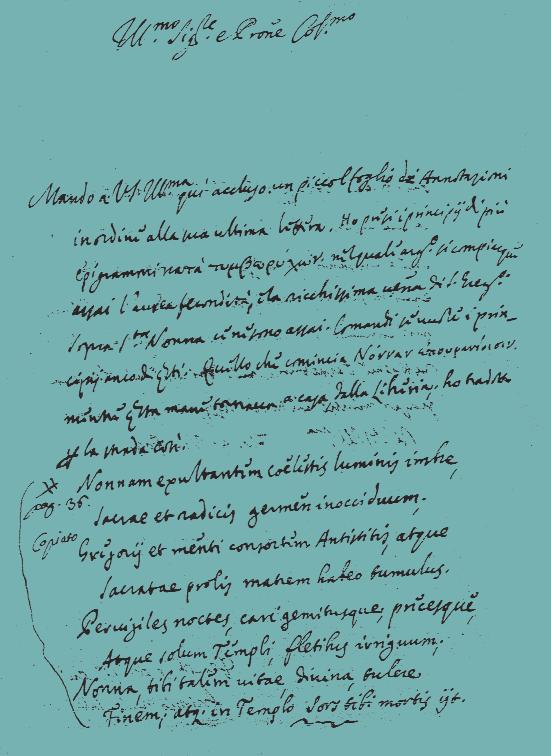 Ill.mo Sig.re e Prone Col.mo
Mando a V.S. Ill.ma qui accluso un piccol foglio di Annotazioni
in ordine alla sua ultima lettera. Ho presi i principij di più
epigrammi κατὰ τυμβωρύχων, ne' quali
assai l'aurea fecondità, e la ricchissima vena di S. Greg.o
Sopra S.ta Nonna ce ne sono assai. Comandi se vuole i prin-
cipij anco di Quello che comincia Νόνναν ἐπουρανίοισιν.
mentre questa mane tornava a casa dalla Libreria, ho tradotto
la strada così.
pag. 36.
Copiato
Nonnam exultantem coelestis luminis imbre,
Sacrae et radicis germen inocciduum.
Grigorij et menti consortem Antistitis, atque
Sacratae prolis matrem habeo tumulus.
Pervigiles noctes, cari gemitusque, precesque,
Atque solum Templi, fletibus irriguum,
Nonna, tibi talem vitae divina, tulere
Finem, atq. in Templo sors tibi mortis iit.